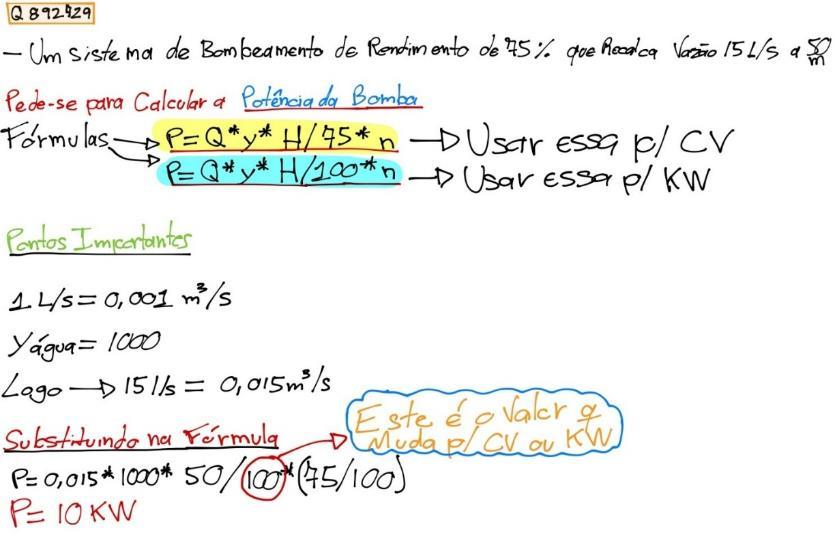 Q892929
- Um sistema de Bombeamento de Rendimento de 75% que Recalca Vazão 15 L/s a 50 m
Pede-se para Calcular a Potência da Bomba
Fórmulas → P=Q*y* H/75* n → Usar essa p/ CV
→ P=Q*y* H/100*n → Usar essa p/ KW
Pontos Importantes
1 L/s = 0,001 m³/s
Yágua = 1000
Logo → 15 l/s = 0,015m³/s
Este é o Valor q
Muda p/ CV ou KW
Substituindo na Fórmula
P= 0,015*1000* 50/100*(75/100)
P= 10 KW